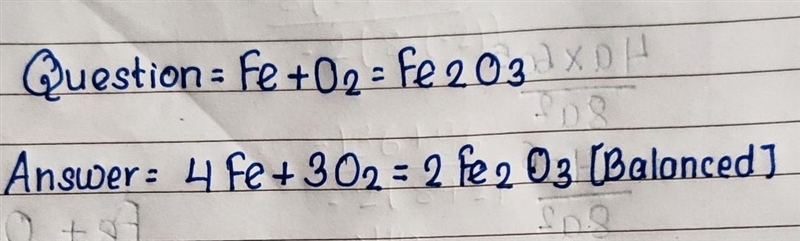 Question = Fe + O2 = Fe2O3
Answer = 4 Fe + 3 O2 = 2 Fe2 O3 [Balanced]